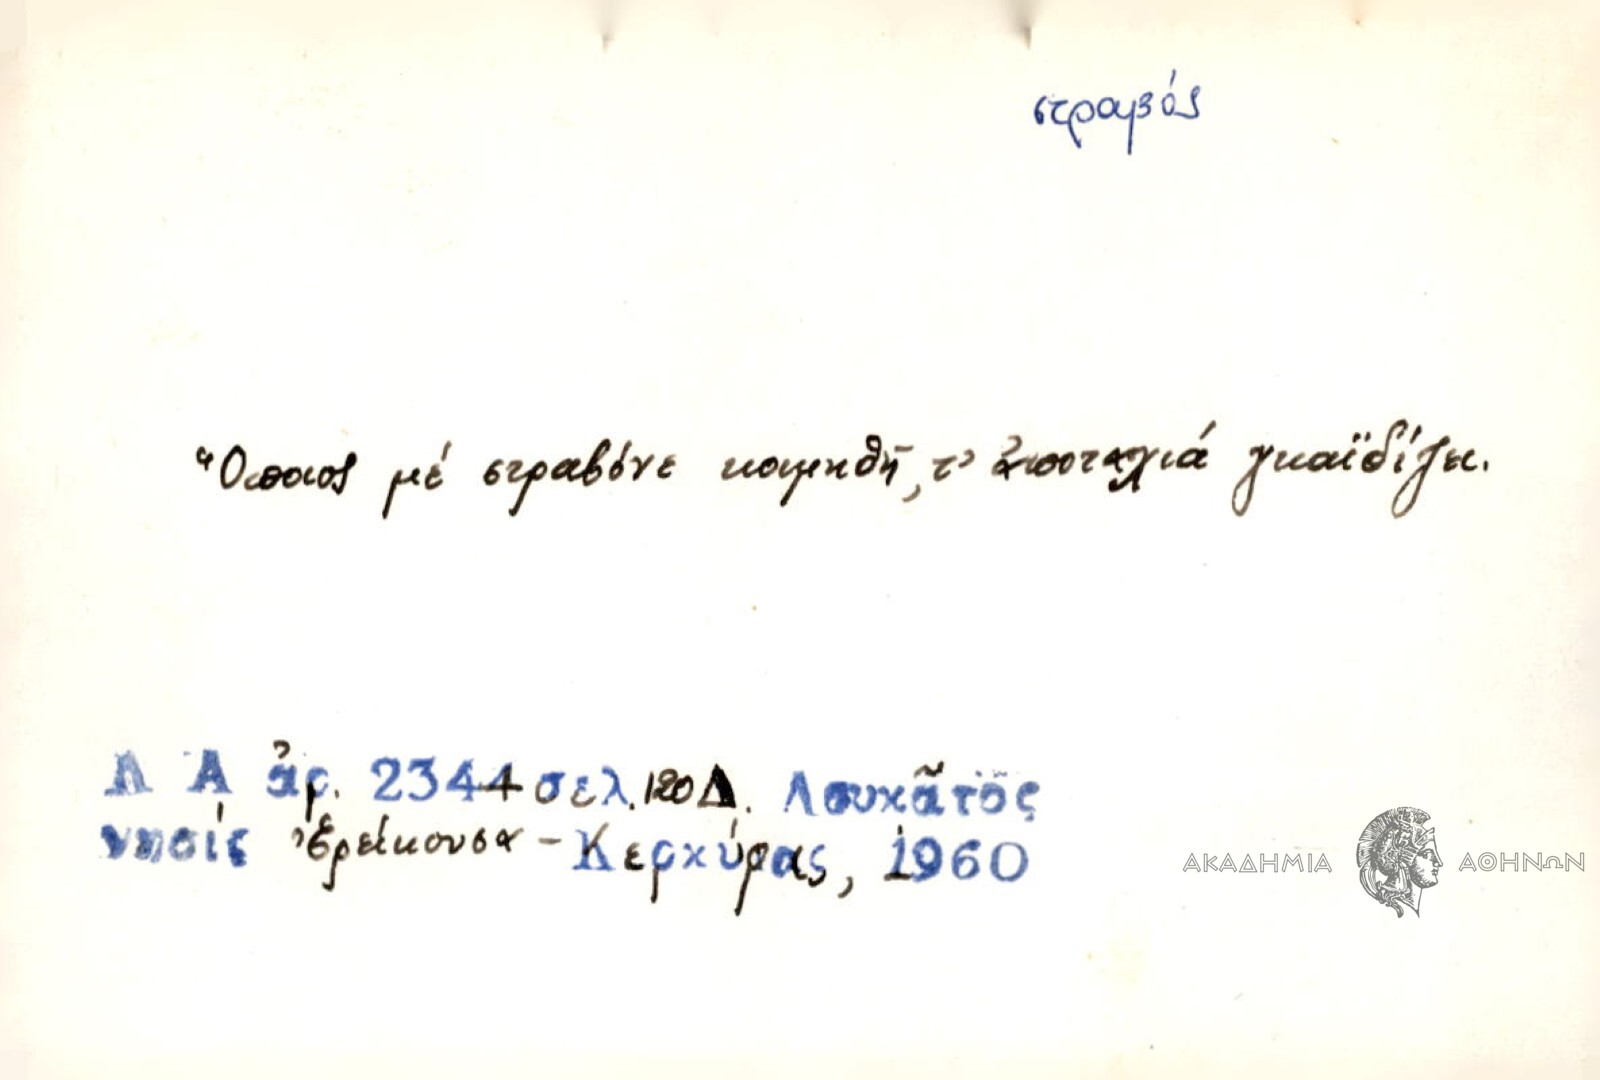 στραβός
Ὅποιος μέ στραβόνε κοιμηθῆ, τ' ἀποταχιά γκαϊδίζει.
Λ Α ἀρ. 2344 σελ. 120 Δ. Λουκᾶτος
νησίς Ἐρείκουσα - Κερκύρας, 1960
ΑΚΑΔΗΜΙΑ ΑΘΗΝΩΝ